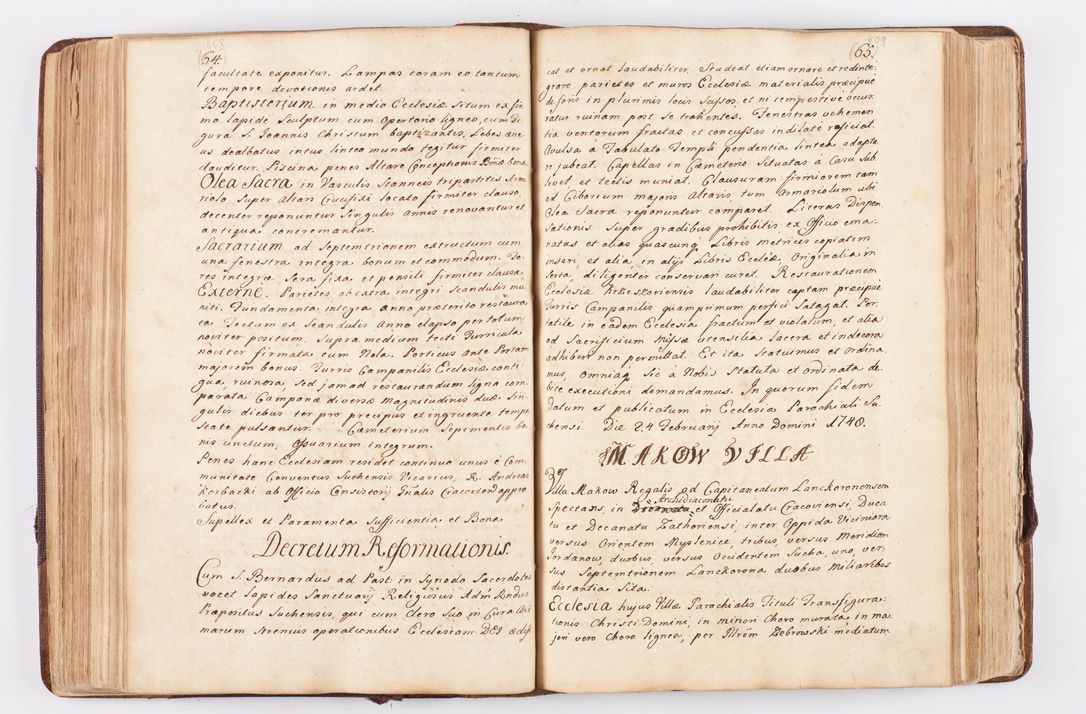 64.
facultate exponitur. Lampas coram eo tantum
tempore devotionis ardet.
Baptisterium in medio Ecclesiæ situm ex fir,
mo lapide Sculptum cum Opertorio ligneo, cum Fi,
gura S. Joannis Christum baptizantis. Lebes æne,
us dealbatus intus linteo mundo tegitur firmiter
clauditur. Piscina penes Altare Conceptionis Bmæ bona.
Olea Sacra in Vasculis Stanneis tripartitis Arm,
riolo Super Altari Crucifixi locato firmiter clauso,
decenter reponuntur Singulis Annis renovantur et
antiqua concremantur.
Sacrarium ad Septemtrionem extructum cum
una fenestra integra bonum et commodum. Fo,
res integræ Sera fixa et pensili firmiter clausa.
Externè. Parietes ab extra integri Scandulis mu,
niti. Fundamenta integra anno præterito restaura,
ta Tectum ex Scandulis Anno elapso per totum
noviter positum. Supra medium tecti Turricula
noviter firmata cum Nola. Porticus ante Portam
majorem bonus. Turris Campanilis Ecclesiæ conti,
gua, ruinosa, Sed jam ad restaurandum ligna com,
parata Campanæ diversæ Magnitudinis duæ Sin,
gulis diebus ter pro precipus et ingruente tempe,
state pulsantur. Cæmeterium Sepimentis bo,
nis cinctum. Ossuarium integrum.
Penes hanc Ecclesiam residet continuo unus è Com,
munitate Conventus Suchensis Vicarius, R. Andreas
Korbacki ab Officio Consistorij Gnalis Cracoviensi appro
batus.
Supellex et Paramenta Sufficientia et Bona
Decretum Reformationis.
Cum S. Bernardus ad Past: in Synodo Sacerdotes
vocet lapides Sanctuarij Religiosus Adm. Rndus
Præpositus Suchensis, qui cum Clero Suo in Cura Ani
marum Strenuis operationibus Ecclesiam DEI ædifi
65.
cat et ornat laudabiliter, Studeat etiam ornare et redinte,
grare parietes et muros Ecclesiæ materialis præcipuè
de foris in plurimis locis Scissos, et ni tempestivè occur,
ratur ruinam post Se trahentes. Fenestras vehemen
tia ventorum fractas et concussas indilatè reficiat.
Avulsa à Tabulato Templi pendentia lintea adapta,
re jubeat. Capellas in Cæmeterio Situatas à Casu Sub,
levet, et tectis muniat. Clausuram firmiorem tam
ad Ciborium majoris Altaris tum Armariolum ubi
Olea Sacra reponuntur comparet. Literas Dispen,
sationis Super gradibus prohibitis ex Officio ema,
natas et alias quascunq Libris metrices copiatim
inseri, et alia in alijs Libris Ecclesiæ, Originalia in
Serta diligenter conservari curet. Restaurationem
Ecclesiæ Krzeszoviensis laudabiliter cæptam præcipuè
Turris Campanilis quamprimum perfici Satagat. Por,
tatile in eadem Ecclesia fractum et violatum, et alia
ad Sacrificium Missæ utensilia lacera et indecora
adhiberi non permittat. Et ita Statuimus et ordina,
mus, omniaq Sic à Nobis Statuta et ordinata de,
bitè executioni demandamus. In quorum fidem
Datum et publicatum in Ecclesia Parochiali Su,
chensi. Die 24 Februarij Anno Domini 1748.
MAKOW VILLA
Villa Makow Regalis ad Capitaneatum Lanckoronensem
Spectans, in Archidiaconatu et Officialatu Cracoviensi, Duca
tu et Decanatu Zathoriensi, inter Oppida Viciniora
versus Orientem Myslenice, tribus, versus Meridiem
Jordanow, duobus, versus Occidentem Sucha, uno, ver,
sus Septemtrionem Lanckorona duobus milliaribus
distantia Sita.
Ecclesia hujus Villæ Parochialis Tituli Transfigura,
tionis Christi Domini, in minori Choro murata, in ma,
jori vero Choro lignea, per Illrem Zebrowski mediatum